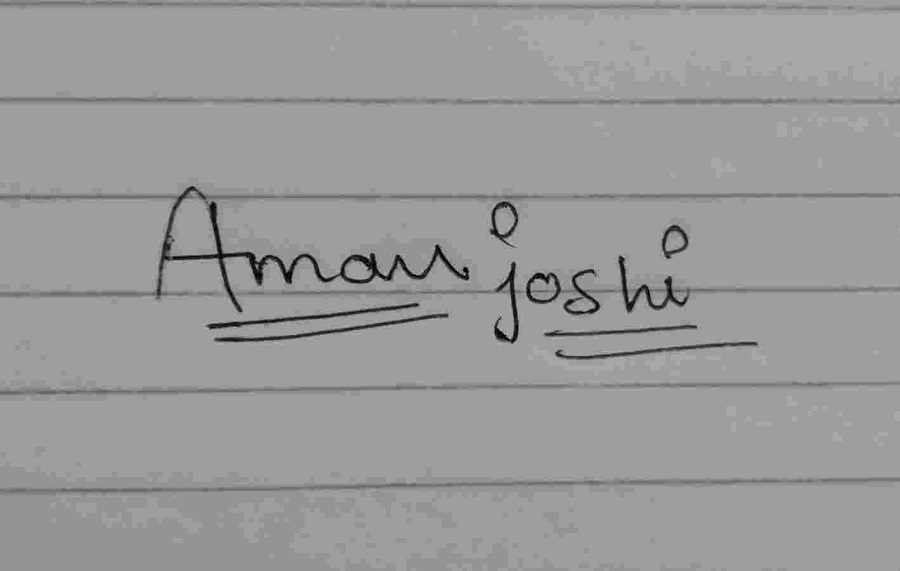 Aman joshi